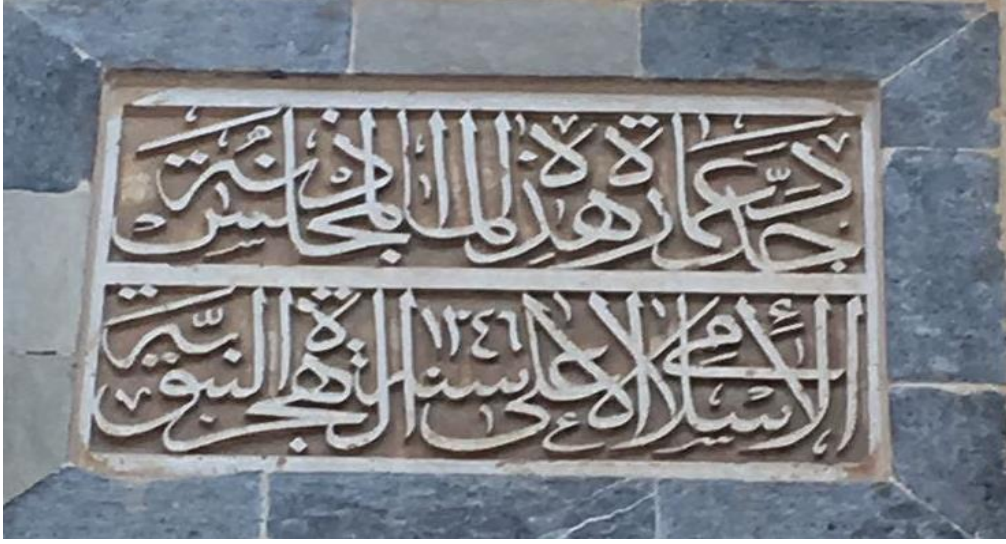 جدد عمارة هذه المأذنة المجلس
الإسلامي الأعلى سنة ١٣٤٦ للهجرة النبوية